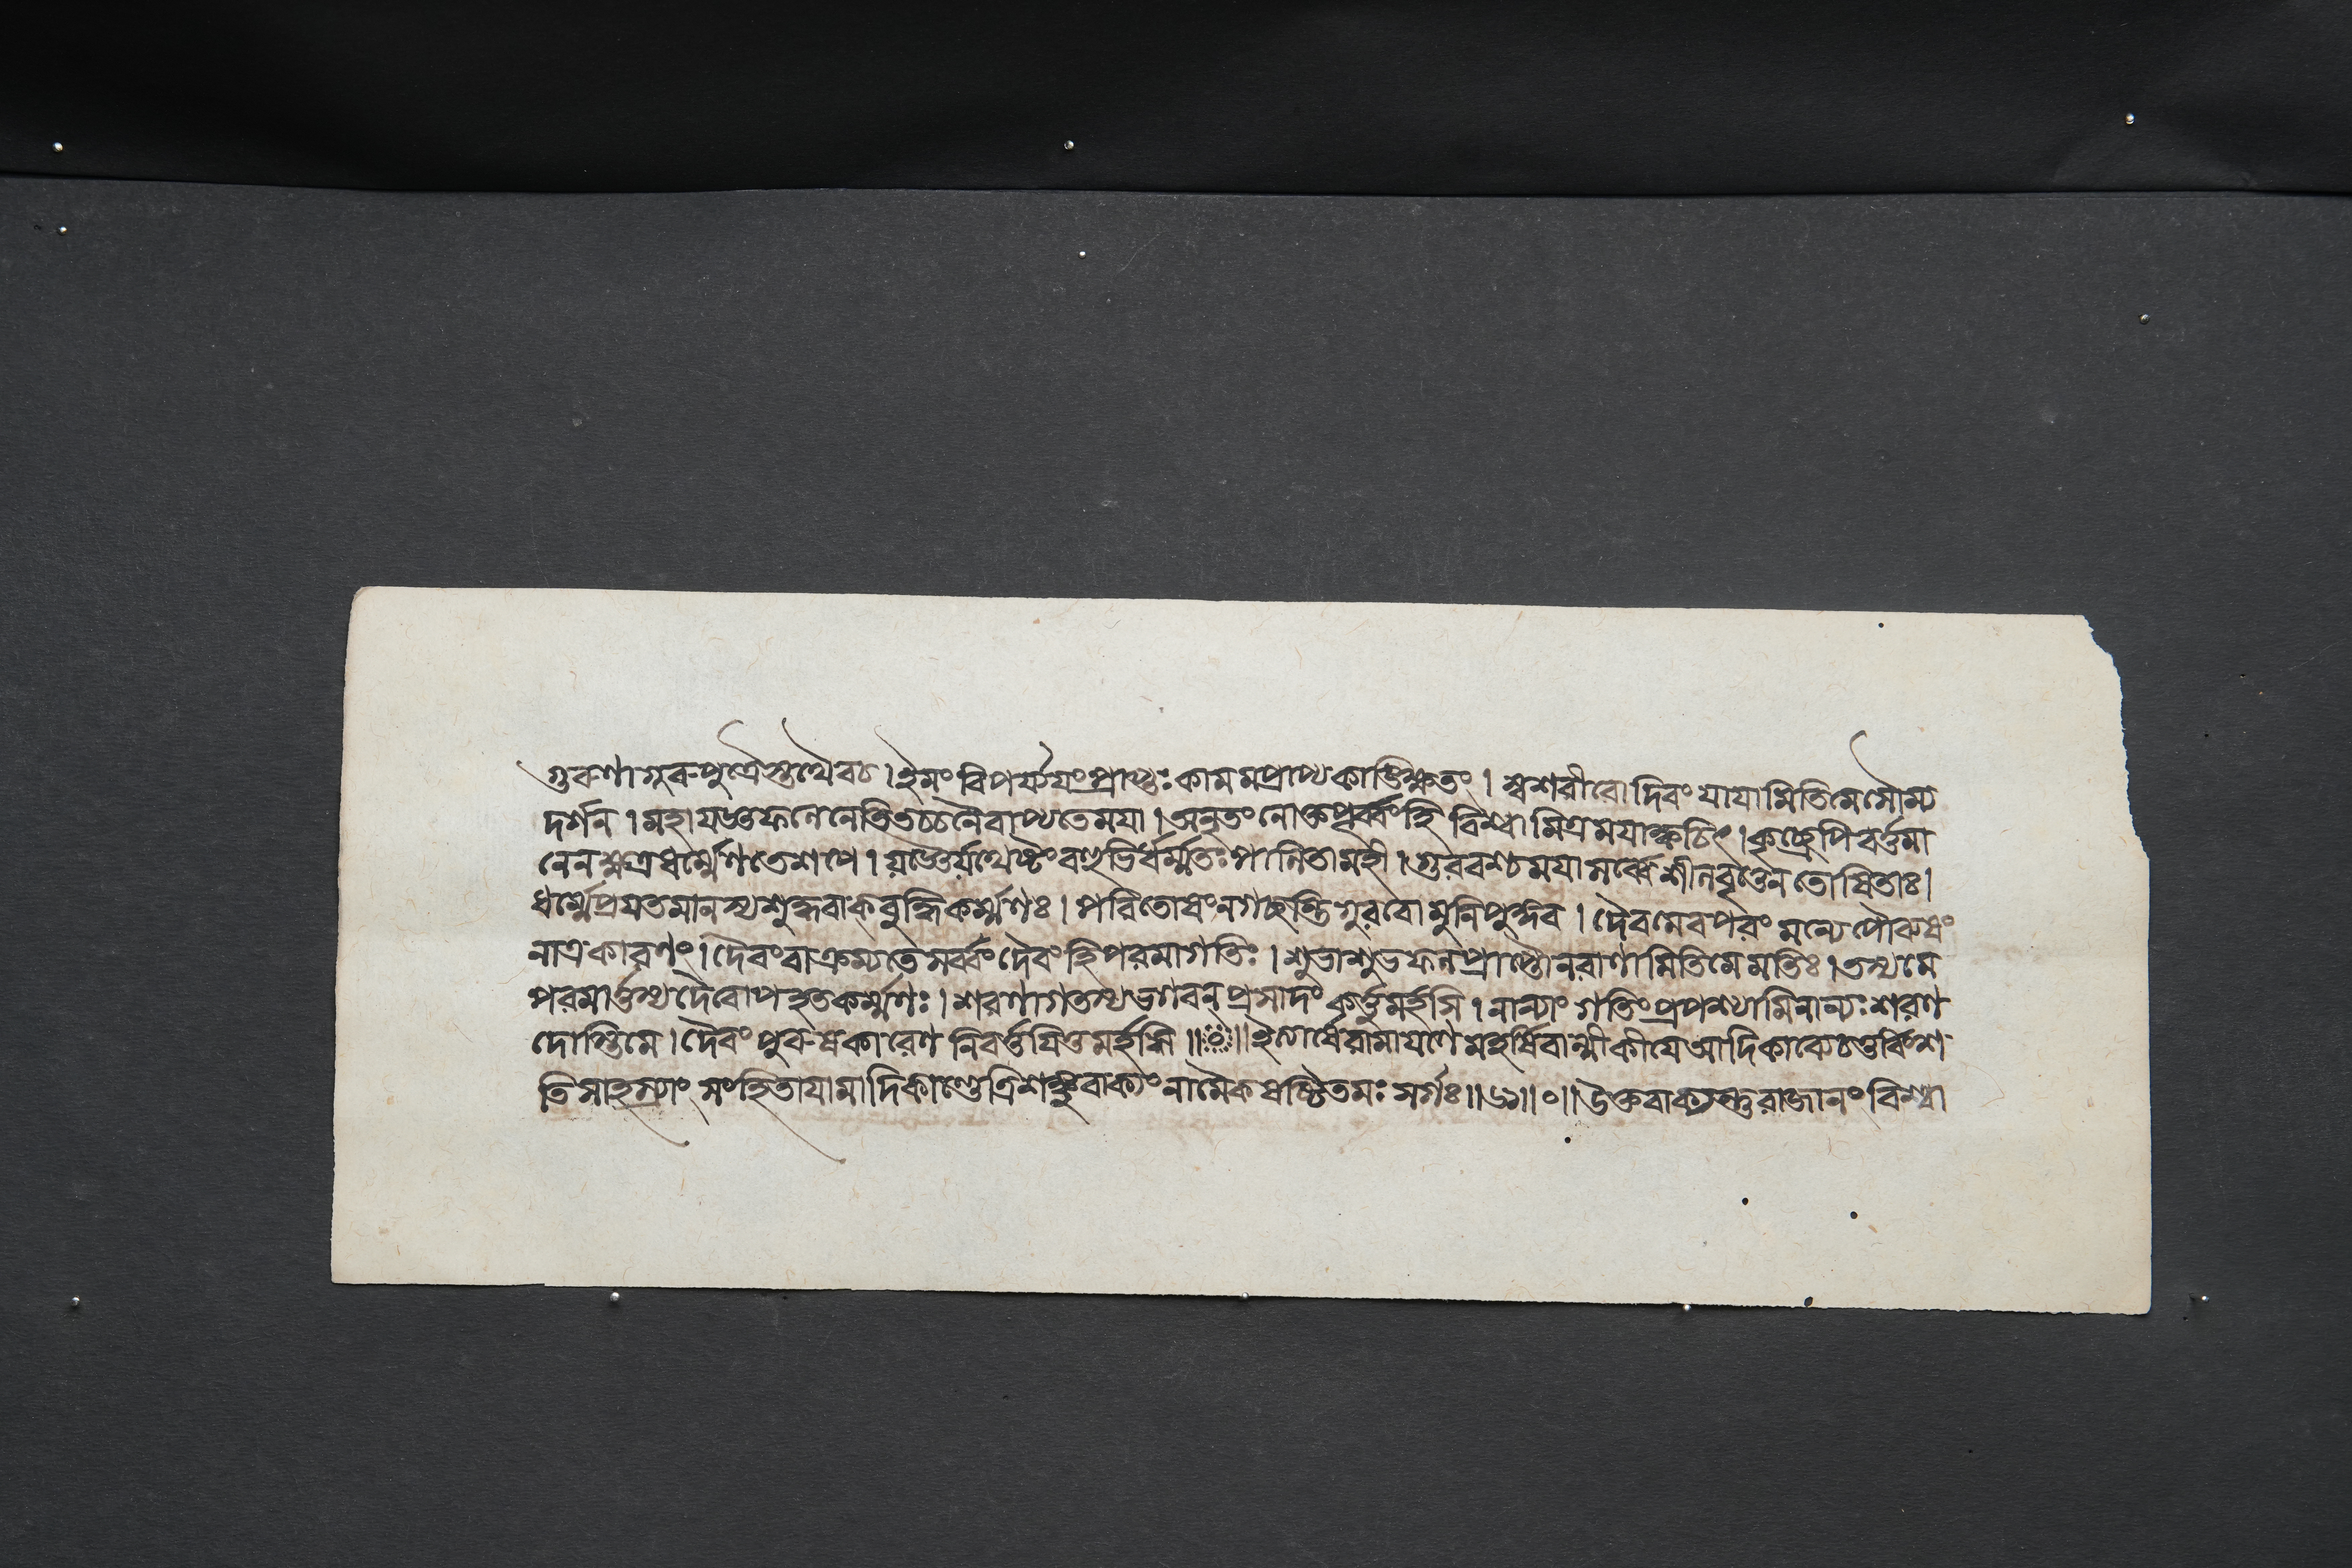 গুরুণা গুরুপুত্রৈস্তথৈবচ । ইমং বিপর্য্যযং প্রাপ্তঃ কামমপ্রাপ্য কাঙ্ক্ষিতং । স্বশরীরো দিবং যাযামিতি মে সৌম্য
দর্শন । মহাযজ্ঞফলেনেতি তচ্চনৈবাপ্যতে মযা । অনৃতং নোক্তপূর্ব্বংহি বিশ্বামিত্র মযা ক্বচিৎ । কৃচ্ছ্রেপি বর্ত্তমা
নেন ক্ষত্রধর্ম্মেণ তে শপে । যজ্ঞৈর্যথেষ্টং বহুভির্ধর্ম্মতঃ পালিতা মহী । গুরবশ্চ মযা সর্ব্বে শীলবৃত্তেন তোষিতাঃ ।
ধর্ম্মে প্রযতমানস্য শুদ্ধবাক্বুদ্ধিকর্ম্মণঃ । পরিতোষং নগচ্ছন্তি গুরবো মুনিপুঙ্গব । দৈবমেব পরং মন্যে পৌরুষং
নাত্র কারণং । দৈবংবাক্রম্যতে সর্ব্বং দৈবংহি পরমাগতিঃ । শুভাশুভফলপ্রাপ্তৌ নরাণামিতি মে মতিঃ । তস্য মে
পরমার্ত্তস্য দৈবোপহতকর্ম্মণঃ । শরণাগতস্য ভগবন্ প্রসাদং কর্ত্তুমর্হসি । নান্যাং গতিং প্রপশ্যামি নান্যঃ শরণ
দোস্তি মে । দৈবং পুরুষকারেণ নিবর্ত্তযিতুমর্হসি ॥ঃ॥ ইত্যার্ষে রামাযণে মহর্ষিবাল্মীকীযে আদিকাব্যে চতুর্ব্বিংশ
তিসাহস্র্যাং সংহিতাযামাদিকাণ্ডে ত্রিশঙ্কুবাক্যং নামৈকষষ্টিতমঃ সর্গঃ ॥৬১॥০॥ উক্তবাক্যন্তু রাজানং বিশ্বা